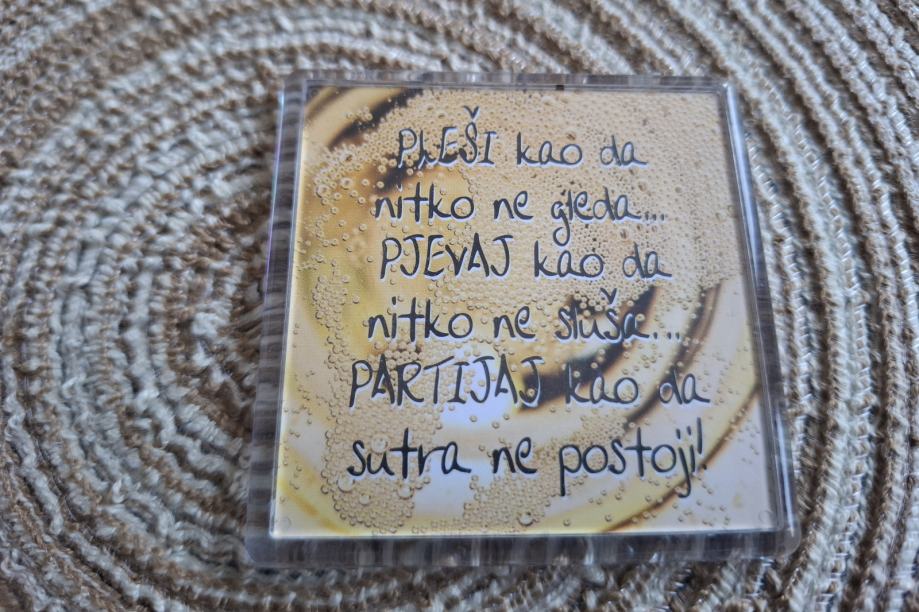 PLEŠI kao da
nitko ne gjeda...
PJEVAJ kao da
nitko ne sluša...
PARTIJAJ kao da
sutra ne postoji!